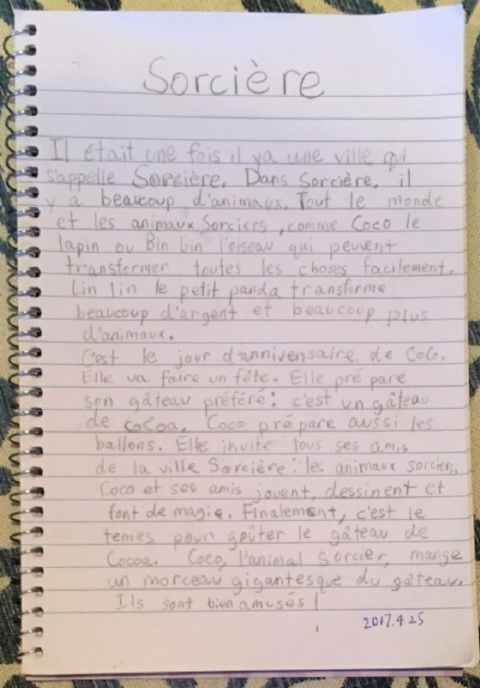 Sorcière
Il était une fois il ya une ville qui
s'appelle Sorsière. Dans Sorcière, il
y a beaucoup d'animaux. Tout le monde
et les animaux Sorciers, comme Coco le
lapin ou Bin bin l'oiseau qui peuvent
transformer toutes les choses facilement.
Lin lin le petit panda transforme
beaucoup d'argent et beaucoup plus
d'animaux.
C'est le jour d'annivensaire de CoCo.
Elle va faire un fête. Elle pré pare
son gâteau préféré: c'est un gâteau
de cocoa. Coco pré pare aussi les
ballons. Elle invite tous ses amis
de la ville Sorcière: les animaux sorciers,
Coco et ses amis jouent, dessinent et
font de magie. Finalement, c'est le
temes pour goûter le gâteau de
Cocoa. Coco, l'animal Sorcier, mange
un morceau gigantesque du gâteau.
Ils sont bien amusés!
2017.4.25